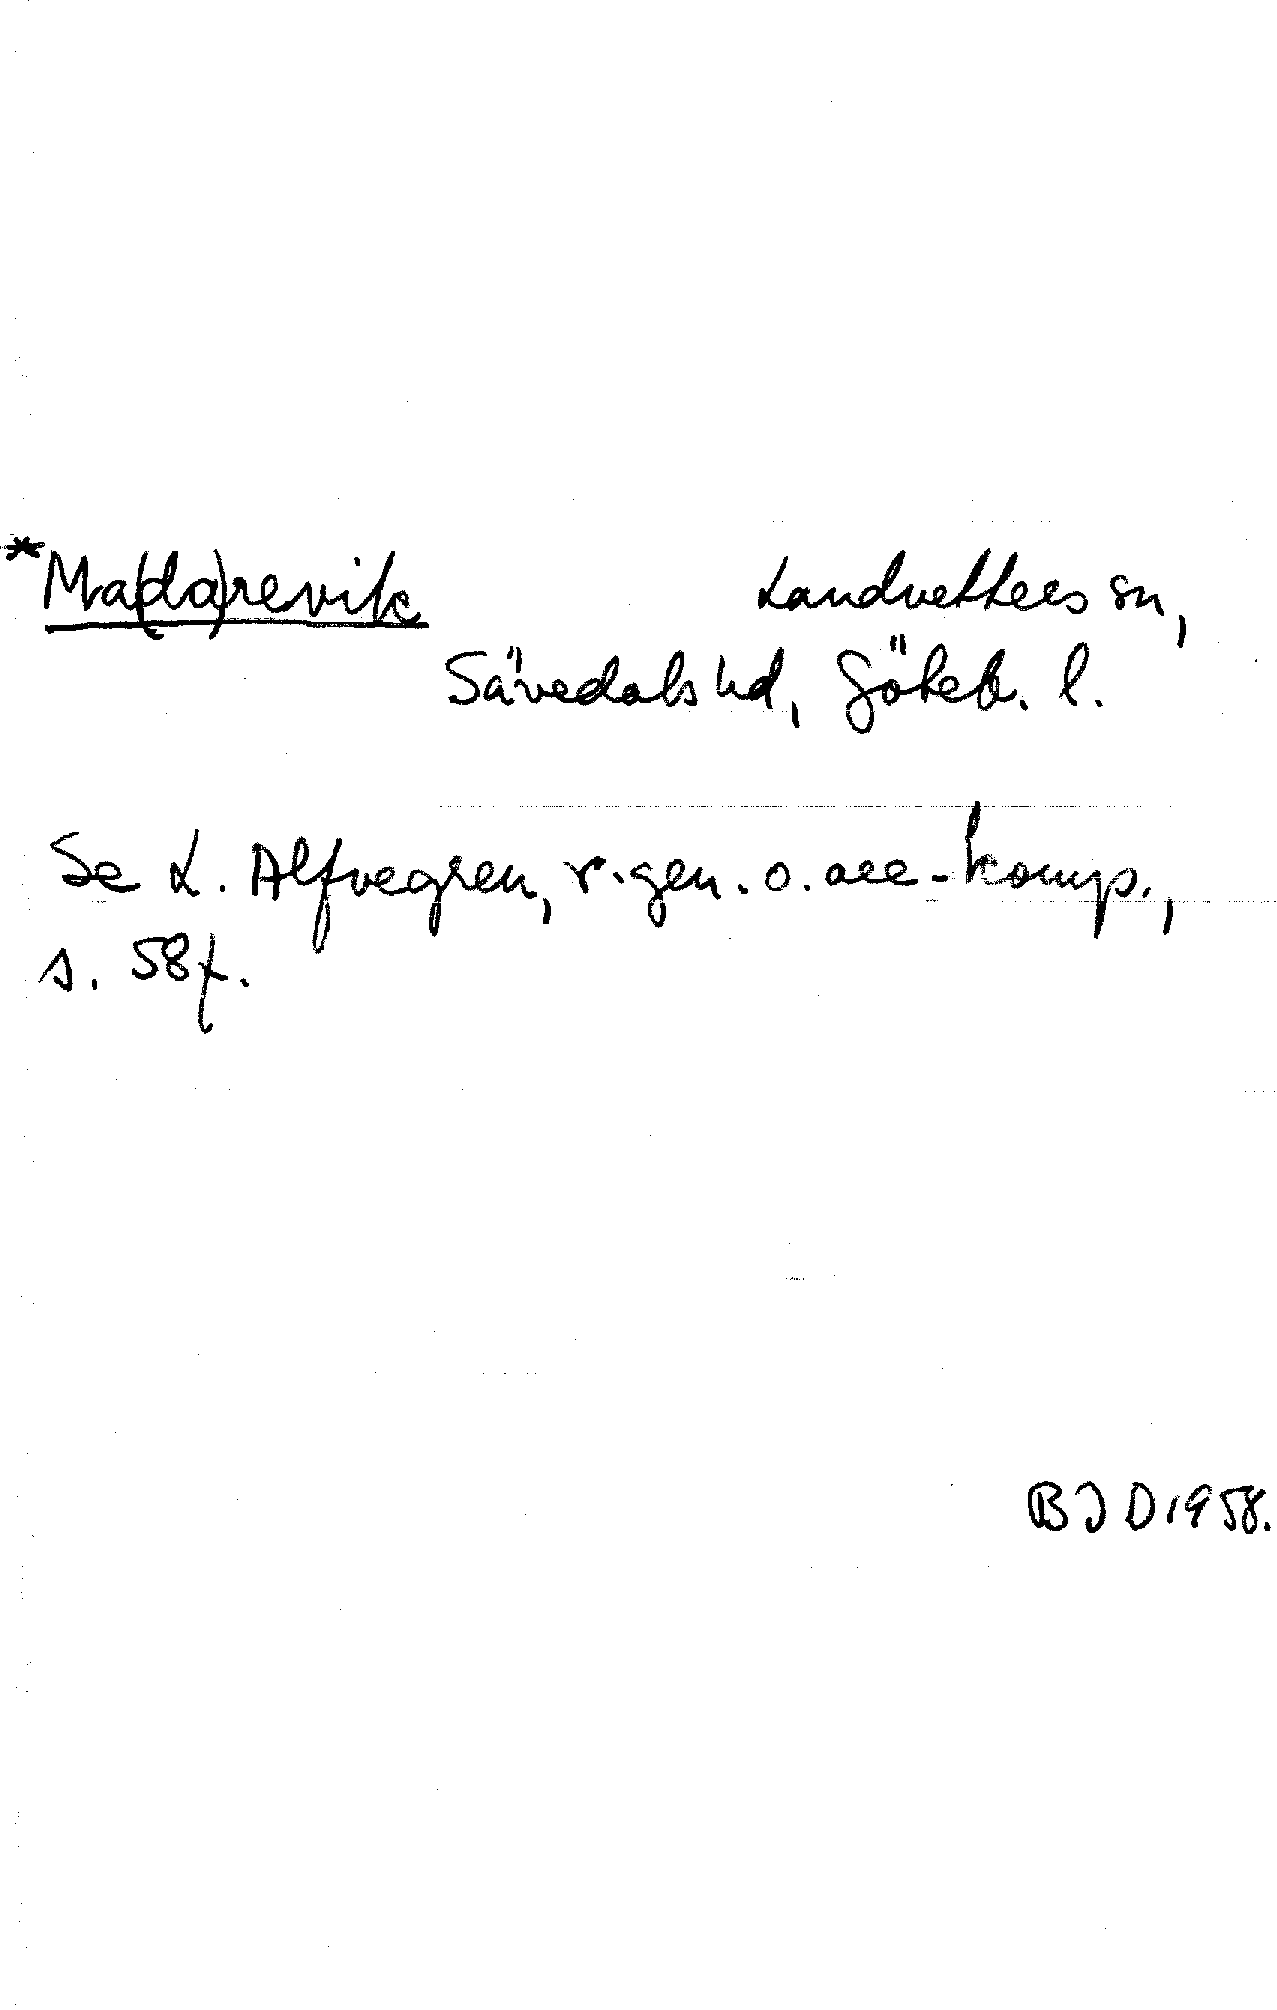 *Ma(da)revik Landvetters sn,
Sävedals hd, Göteb. l.
Se L. Alfvegren, r-gen. o. are-komp.,
s. 58f.
BJD1958.